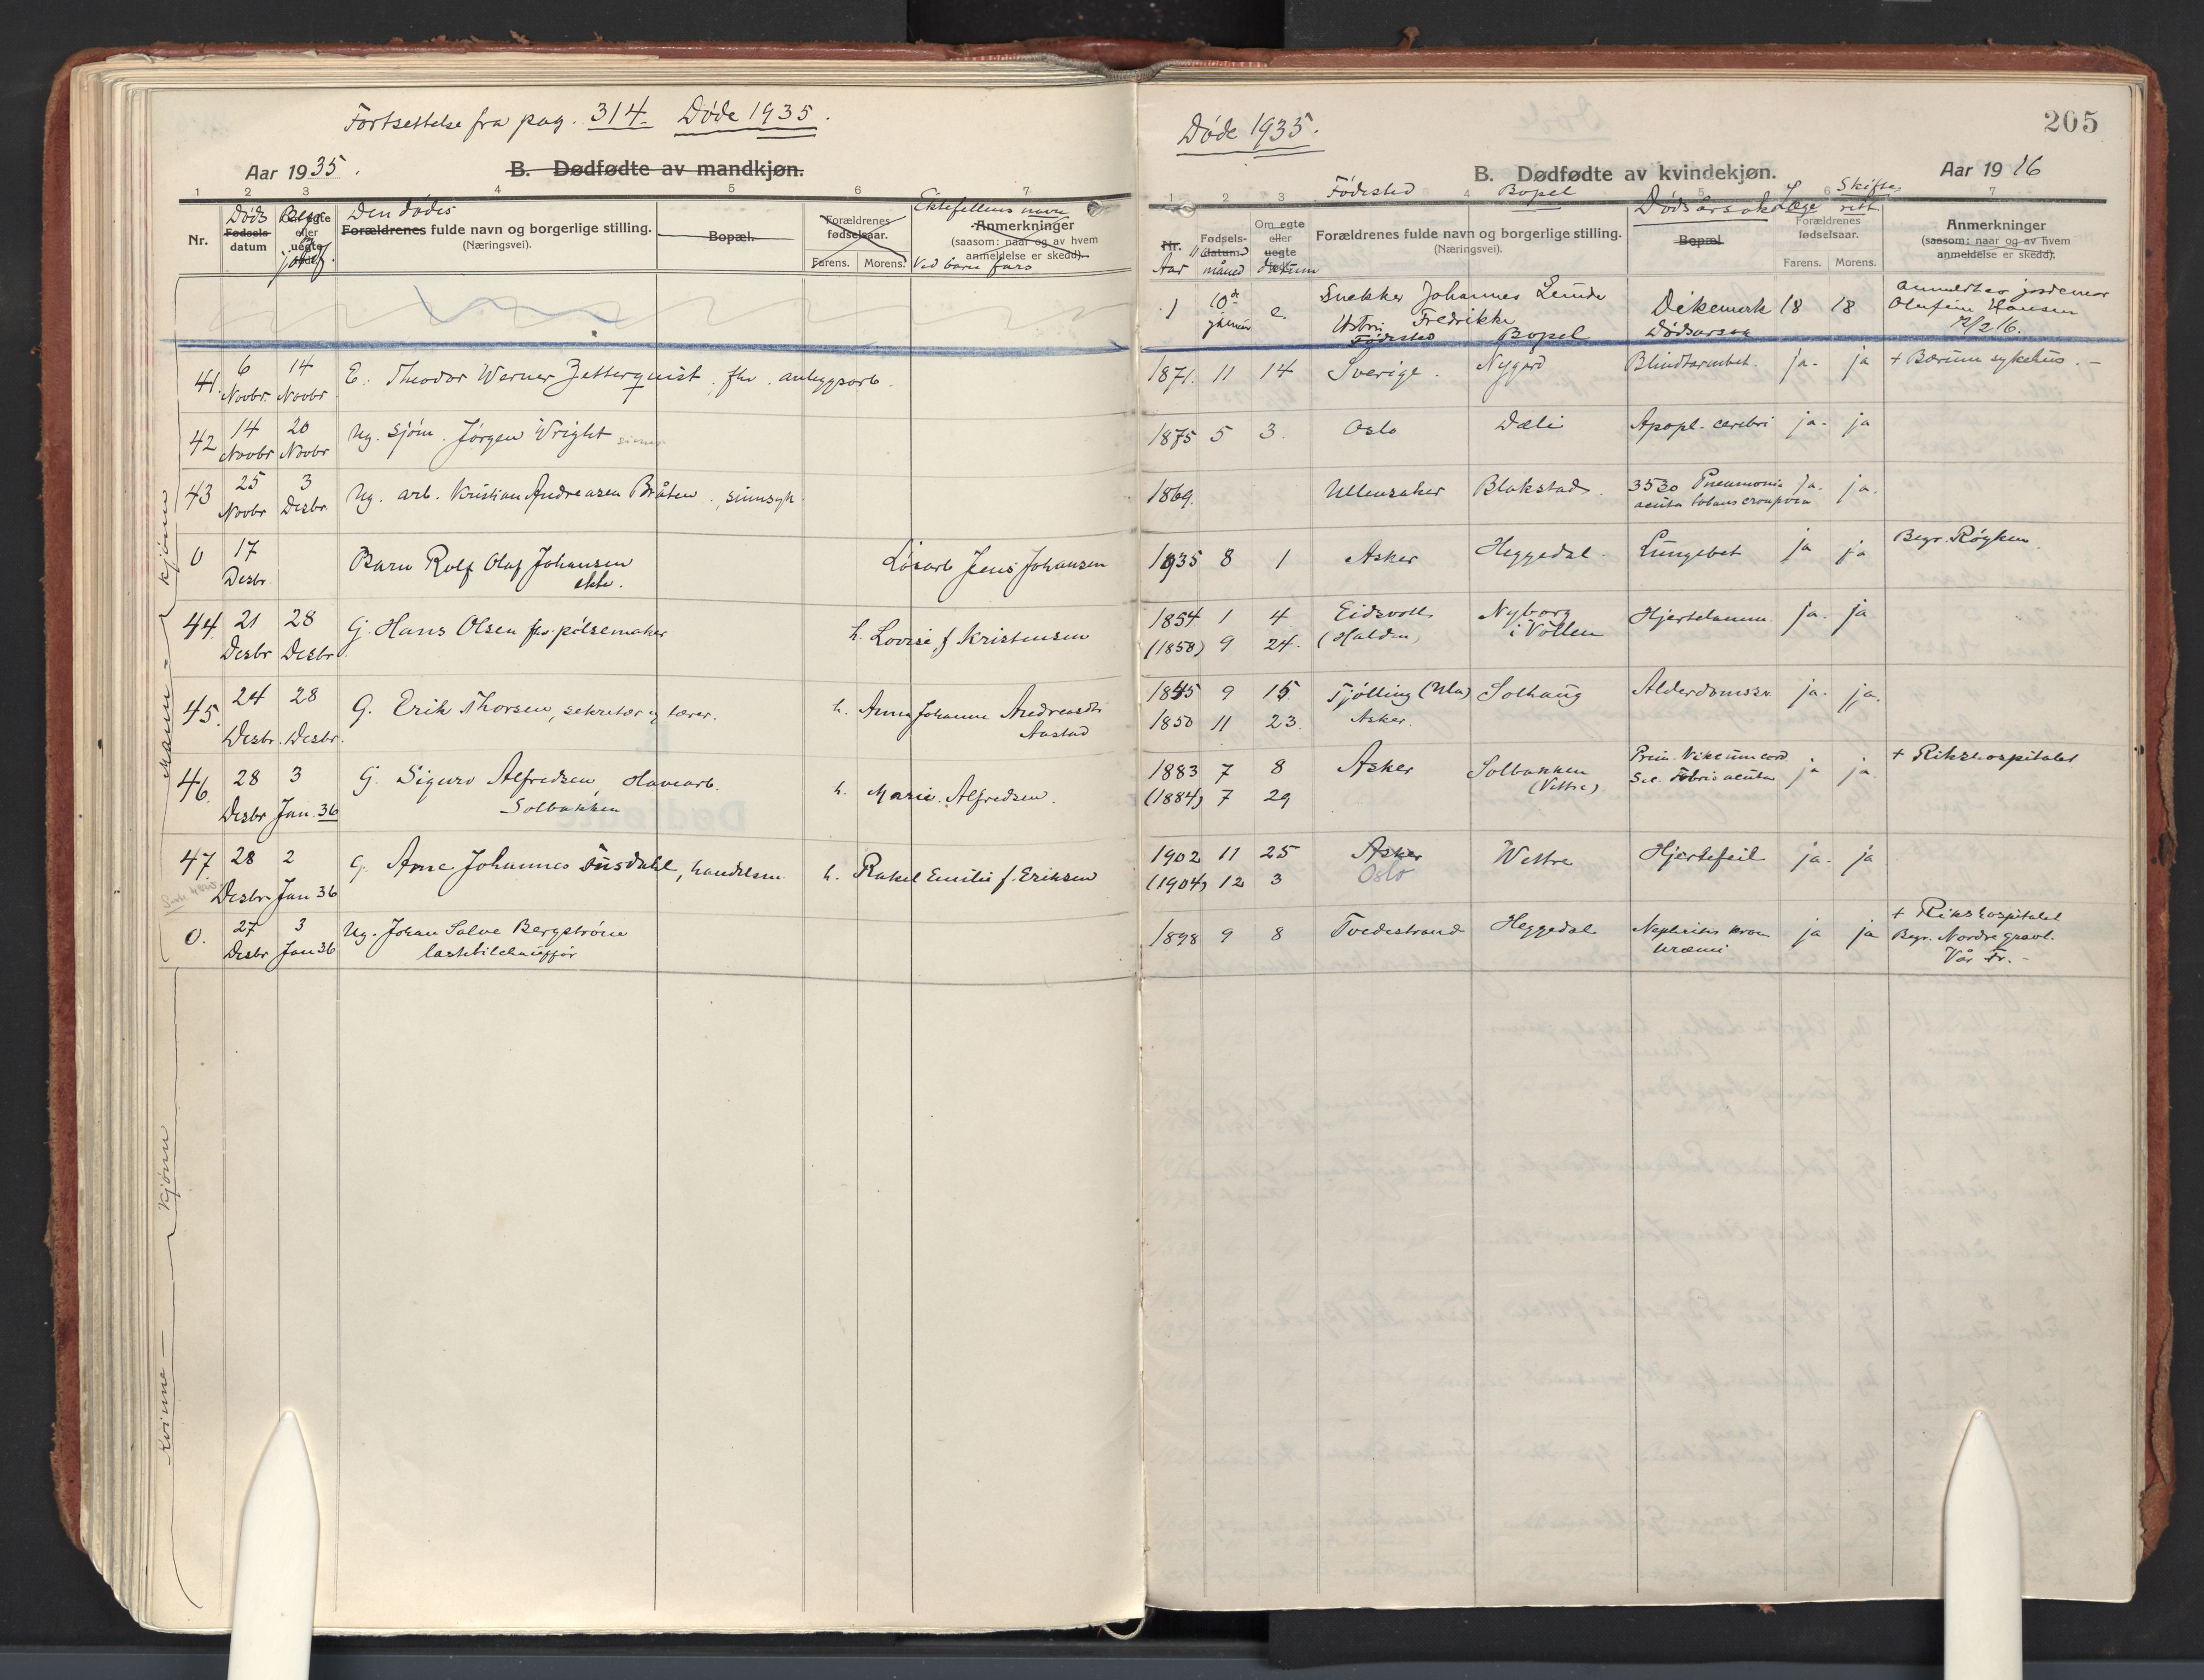 Fortsettelse fra pag. 314. Døde 1935.
Aar 1935.
B. Dødfødte av mandkjøn.
1 2 3 4 5 6 7
Nr.
Døds
Fødsels-
datum
Om egte
eller
uegte
jordf.
Den dødes
Forældrenes fulde navn og borgerlige stilling.
(Næringsvei).
Bopæl.
Forældrenes
fødselsaar.
Farens. Morens.
Ektefellens navn
Anmerkninger
(saasom: naar og av hvem
anmeldelse er skedd).
Ved barn fars
Mann - kjønn
41. 6 Novbr. 14 Novbr E. Theodor Werner Zetterquist, fhv. anleggsarb.
42 14 Novbr 20 Novbr Ug. sjøm. Jørgen Wright
43 25 Novbr 3 Desbr Ug. arb. Kristian Andreasen Bråten, sinnsyk.
0 17 Desbr. Barn Rolf Olaf Johansen
ekte.
Løsarb Jens Johansen
44. 21 Desbr 28 Desbr G. Hans Olsen fhv. pølsemaker h. Lovise f. Kristensen
45. 24 Desbr. 28 Desbr. G. Erik Thorsen, sekretær og lærer. h. Anna Johanne Andreasdtr
Aastad
46. 28 Desbr 3 Jan. 36 G. Sigurd Alfredsen, Havearb.
Solbakken
h. Marie Alfredsen.
47. 28 Desbr. 2 Jan 36 G. Arne Johannes Tusdahl, handelsm. h. Rakel Emilie f. Eriksen
0. 27 Desbr 3 Jan 36 Ug. Johan Salve Bergstrøm
lastebilchauffør
Kvinne - kjønn
Døde 1935.
205
B. Dødfødte av kvindekjøn.
Aar 1916
1 2 3 4 5 6 7
Nr.
Aar
Fødsels-
datum
måned
Om egte
eller
uegte
datum
Fødested Bopel
Forældrenes fulde navn og borgerlige stilling.
(Næringsvei).
Dødsårsak
Bopæl
Læge
Skifte
rett
Forældrenes
fødselsaar.
Farens. Morens.
Anmerkninger
(saasom: naar og av hvem
anmeldelse er skedd).
1 10de e. Snekker Johannes
Fredrikke
Dikemark 18 18
Olufine Hansen
Fødested Bopel Dødsårsak
1871. 11 14 Sverige. Nygård Blindtarmbet. ja. ja + Bærum sykehus. -
1875 5 3. Oslo Dæli Apopl. cerebri ja. ja
1869. Ullensaker Blakstad. 3530 Pneumonia ja. ja.
acuta lobaris crouposa
1935 8 1 Asker Heggedal. Lungebet ja ja Begr. Røyken
1854 1 4 Eidsvoll Nyborg Hjertelamm. ja. ja
i Vollen
(1858) 9 24. (Halden)
1845 9 15 Tjølling (Ula) Solhaug Alderdomssv. ja. ja.
1850 11 23. Asker.
1883 7 8 Asker Solbakken ja ja. + Rikshospitalet
(Vettre)
(1884) 7 29
1902 11 25 Asker Wettre Hjertefeil ja. ja
(1904) 12 3 Oslo
1898 9 8 Tvedestrand Heggedal Nephritis kron ja ja + Rikshospitalet
uræmi
Begr. Nordre gravl.
Vår Fr. -